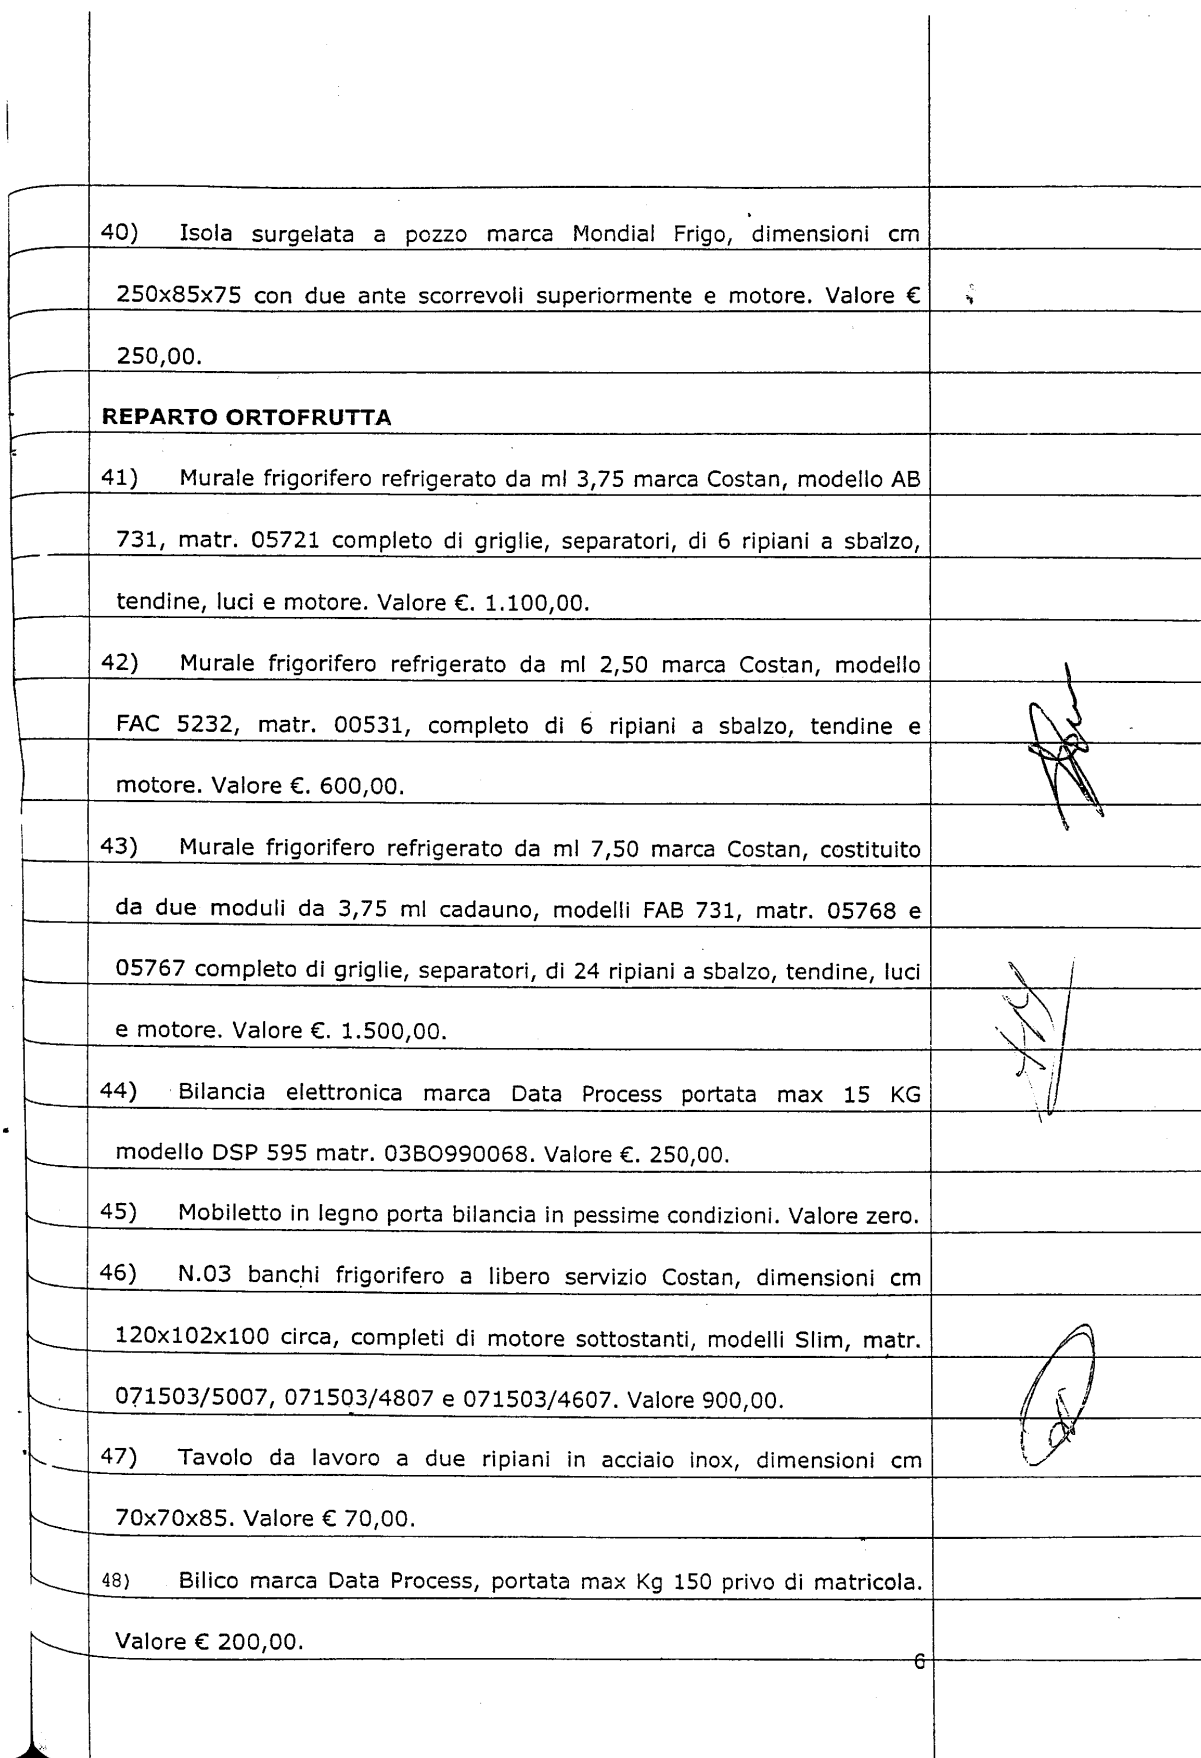 40) Isola surgelata a pozzo marca Mondial Frigo, dimensioni cm
250x85x75 con due ante scorrevoli superiormente e motore. Valore €
250,00.
REPARTO ORTOFRUTTA
41) Murale frigorifero refrigerato da ml 3,75 marca Costan, modello AB
731, matr. 05721 completo di griglie, separatori, di 6 ripiani a sbalzo,
tendine, luci e motore. Valore €. 1.100,00.
42) Murale frigorifero refrigerato da ml 2,50 marca Costan, modello
FAC 5232, matr. 00531, completo di 6 ripiani a sbalzo, tendine e
motore. Valore €. 600,00.
43) Murale frigorifero refrigerato da ml 7,50 marca Costan, costituito
da due moduli da 3,75 ml cadauno, modelli FAB 731, matr. 05768 e
05767 completo di griglie, separatori, di 24 ripiani a sbalzo, tendine, luci
e motore. Valore €. 1.500,00.
44) Bilancia elettronica marca Data Process portata max 15 KG
modello DSP 595 matr. 03BO990068. Valore €. 250,00.
45) Mobiletto in legno porta bilancia in pessime condizioni. Valore zero.
46) N.03 banchi frigorifero a libero servizio Costan, dimensioni cm
120x102x100 circa, completi di motore sottostanti, modelli Slim, matr.
071503/5007, 071503/4807 e 071503/4607. Valore 900,00.
47) Tavolo da lavoro a due ripiani in acciaio inox, dimensioni cm
70x70x85. Valore € 70,00.
48) Bilico marca Data Process, portata max Kg 150 privo di matricola.
Valore € 200,00.
6